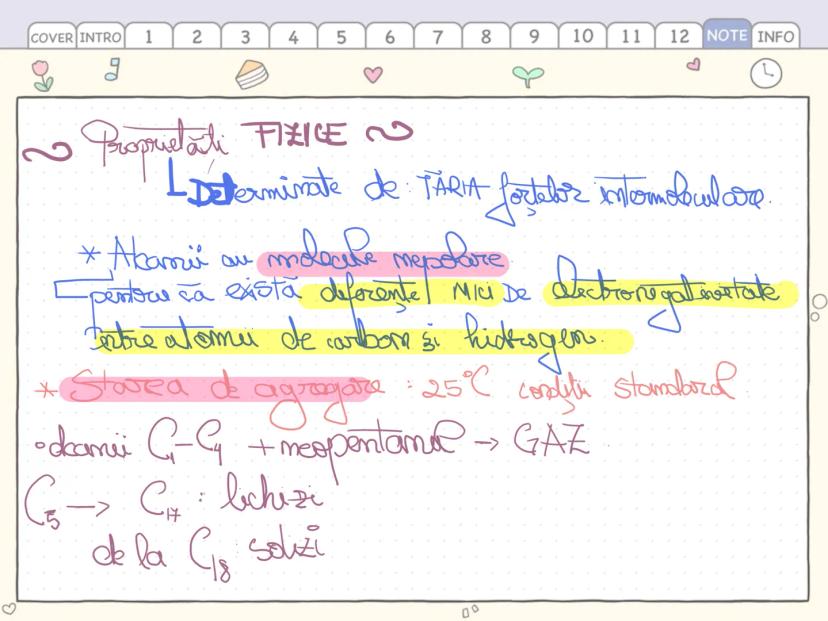 COVER INTRO 1 2 3 4 5 6 7 8 9 10 11 12 NOTE INFO
~ Proprietăți FIZICE ~
Determinate de: TĂRIA forțelor intermoleculare.
* Alcanii au molecule nepolare
pentru că există diferențe MICI DE electronegativitate
între atomii de carbon și hidrogen.
* Starea de agregare : 25°C condiții standard
• alcanii C1-C4 + neopentanul → GAZ
C5 → C17 : lichizi
de la C18 : solizi